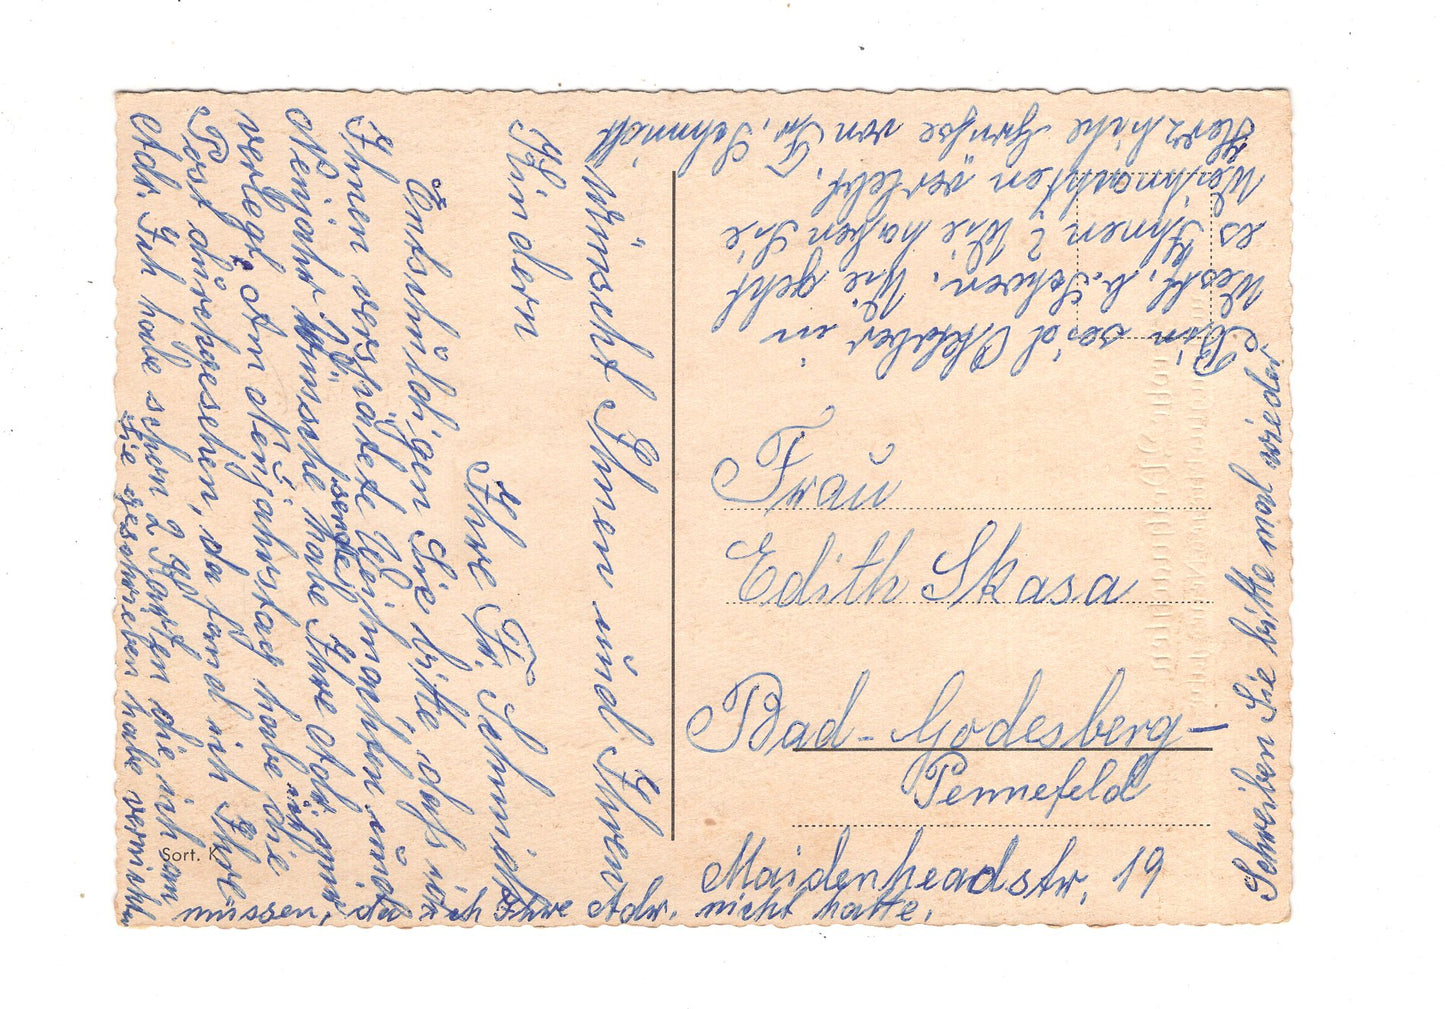 wünscht Ihnen und Ihren
Kindern
Ihre Fr. Schmidt
Entschuldigen Sie bitte, daß ich
Ihnen verspätete Weihnachten und
Neujahr wünsche habe Ihre Adr.
sende
verlegt, Am Neujahrstag habe ich die
Post durchgesehen, da fand ich Ihre
Adr. Ich habe schon 2 Karten die ich an
Sie geschrieben habe vernichten
müssen, da ich Ihre Adr. nicht hatte.
Bin seid Oktober in
Westf, b. Schwen. Wie geht
es Ihnen? Wie haben Sie
Weihnachten verlebt.
Herzliche Grüße von Fr. Schmidt
Schreiben Sie bitte mal wieder
Frau
Edith Skasa
Bad-Godesberg-
Pennefeld
Maidenheadstr. 19
Sort. K